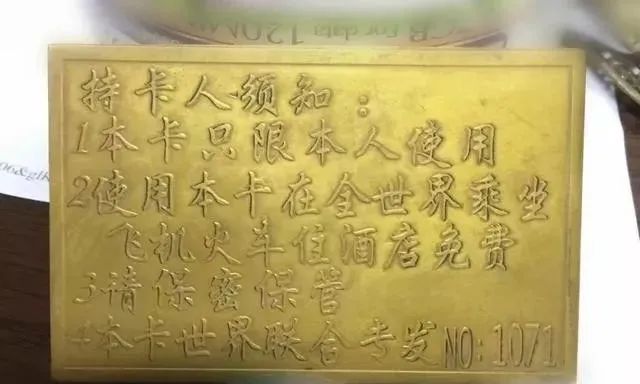 持卡人须知：
1本卡只限本人使用
2使用本卡在全世界乘坐
飞机火车住酒店免费
3请保密保管
4本卡世界联合专发NO:1071